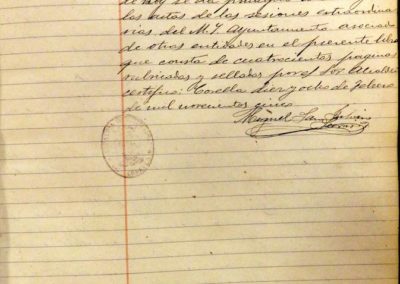 los actas de las sesiones extraordina
rias, del M. Y. Ayuntamiento asociado
de otras entidades en el presente libro
que consta de cuatrocientas paginas
rubricadas y selladas por el Sor Alcalde
certifico: Corella diez y ocho de Febrero
de mil novecientos cinco
Miguel San